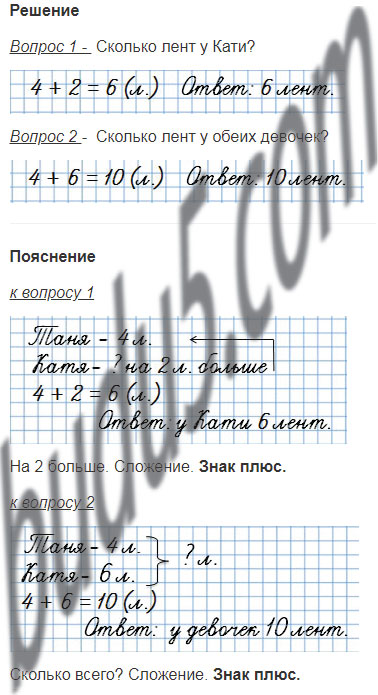 Решение
Вопрос 1 - Сколько лент у Кати?
4 + 2 = 6 (л.) Ответ: 6 лент.
Вопрос 2 - Сколько лент у обеих девочек?
4 + 6 = 10 (л.) Ответ: 10 лент.
Пояснение
к вопросу 1
Таня - 4 л.
Катя - ? на 2 л. больше
4 + 2 = 6 (л.)
Ответ: у Кати 6 лент.
На 2 больше. Сложение. Знак плюс.
к вопросу 2
Таня - 4 л.
Катя - 6 л.
? л.
4 + 6 = 10 (л.)
Ответ: у девочек 10 лент.
Сколько всего? Сложение. Знак плюс.
budu5.com